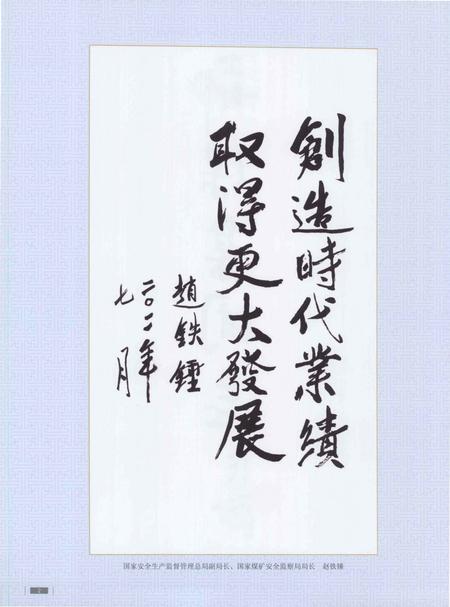 創造時代業績
取得更大發展
趙铁錘
二〇一一年
七月
国家安全生产监督管理总局副局长、国家煤矿安全监察局局长 赵铁锤
2